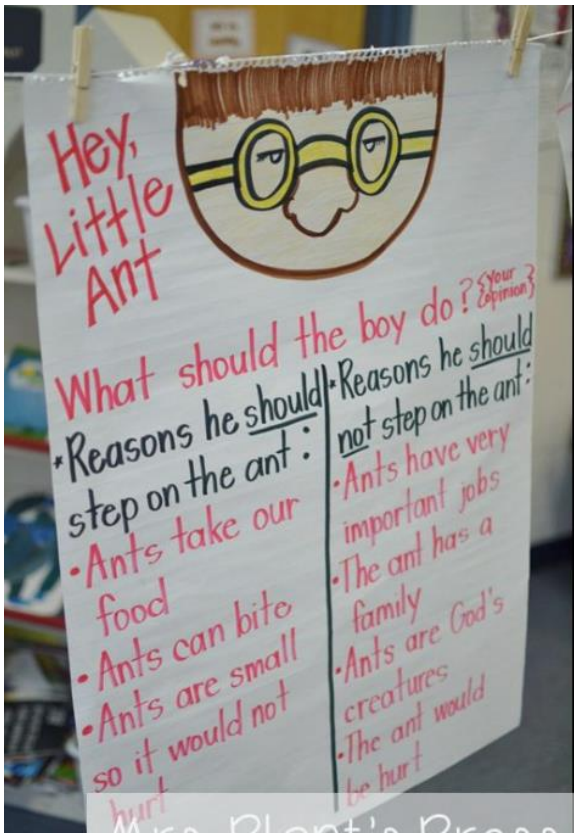 Hey,
Little
Ant
What should the boy do? {your opinion}
*Reasons he should
step on the ant:
•Ants take our
food
•Ants can bite
•Ants are small
so it would not
hurt
*Reasons he should
not step on the ant:
•Ants have very
important jobs
•The ant has a
family
•Ants are God's
creatures
•The ant would
be hurt